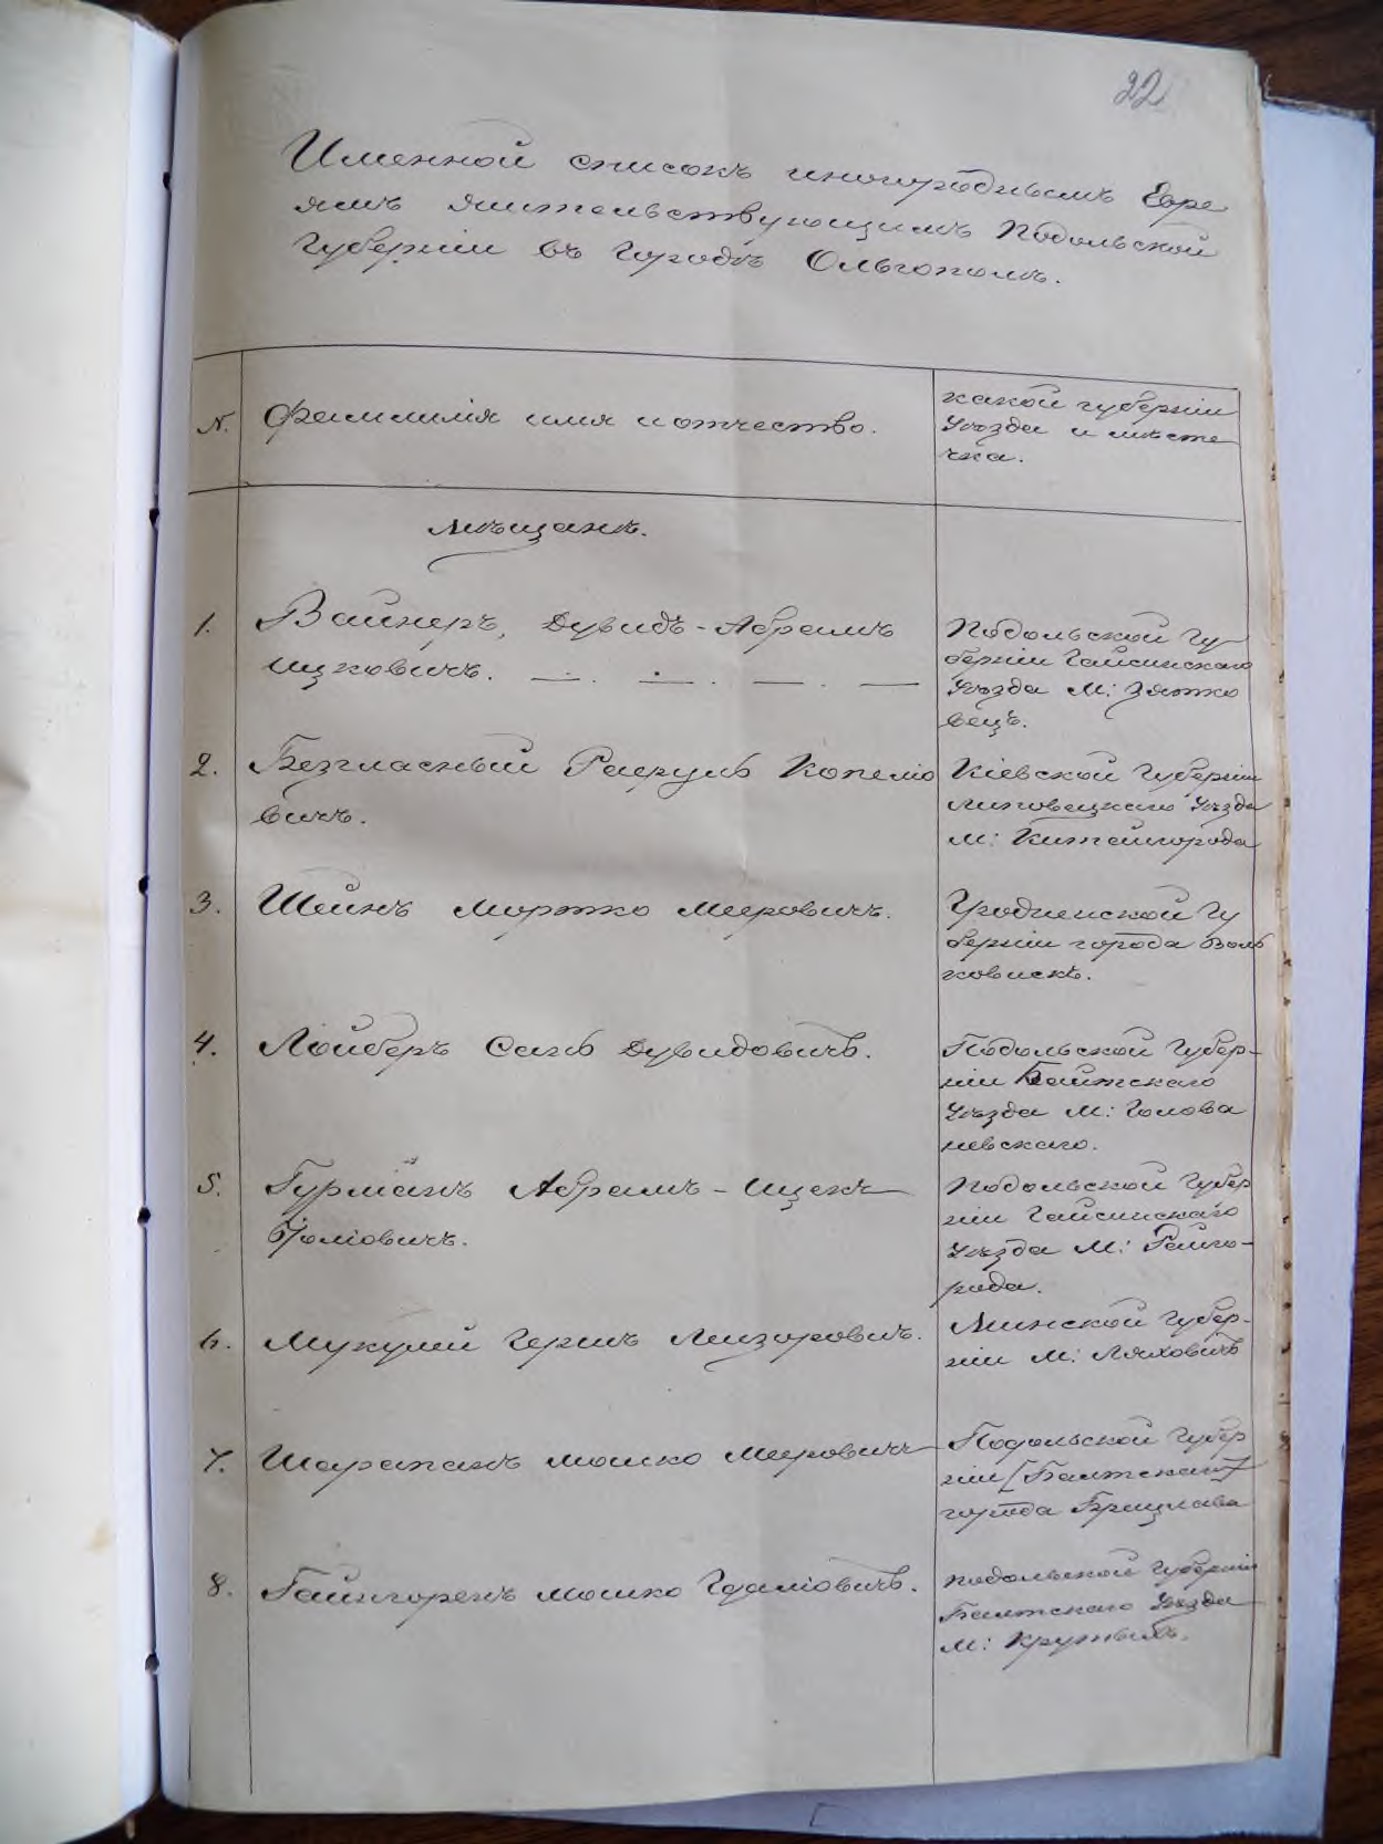 22
Именной списокъ иногороднымъ Евре
ямъ жительствующимъ Подольской
Губерніи въ городѣ Ольгополѣ.
№.
Фамилія имя и отчество.
какой губерніи
Уѣзда и мѣсте
чка.
Мѣщанъ.
1.
Вайнеръ, Дувидъ-Абрамъ
Ицковичъ.
Подольской Гу
берніи Гайсинскаго
Уѣзда М: Зятко
вецъ.
2.
Безгласный Копеліо
вичъ.
Кіевской Губерніи
Липовецкаго Уѣзда
М: Китайгорода
3.
Шейнъ Мортко Меровичъ.
Гродненской Гу
берніи города Воль
ковискъ.
4.
Лойберъ Дувидовичъ.
Подольской Губер-
ніи Балтскаго
Уѣзда М: Голова
невскаго.
5.
Гурманъ Абрамъ-Ицекъ
Іоліовичъ.
Подольской Губер
ніи Гайсинскаго
Уѣзда М: Райго-
рода.
6.
Мукумей Гершъ Лейзоровичъ.
Минской Губер-
ніи М: Ляховичъ
7.
Шарапанъ Мошко Меровичъ
Подольской Губер
ніи [Балтскаго]
города Брацлава
8.
Гайнгоренъ Мошко Гдаліовичъ.
Подольской Губерніи
Балтскаго Уѣзда
М: Крутыхъ.